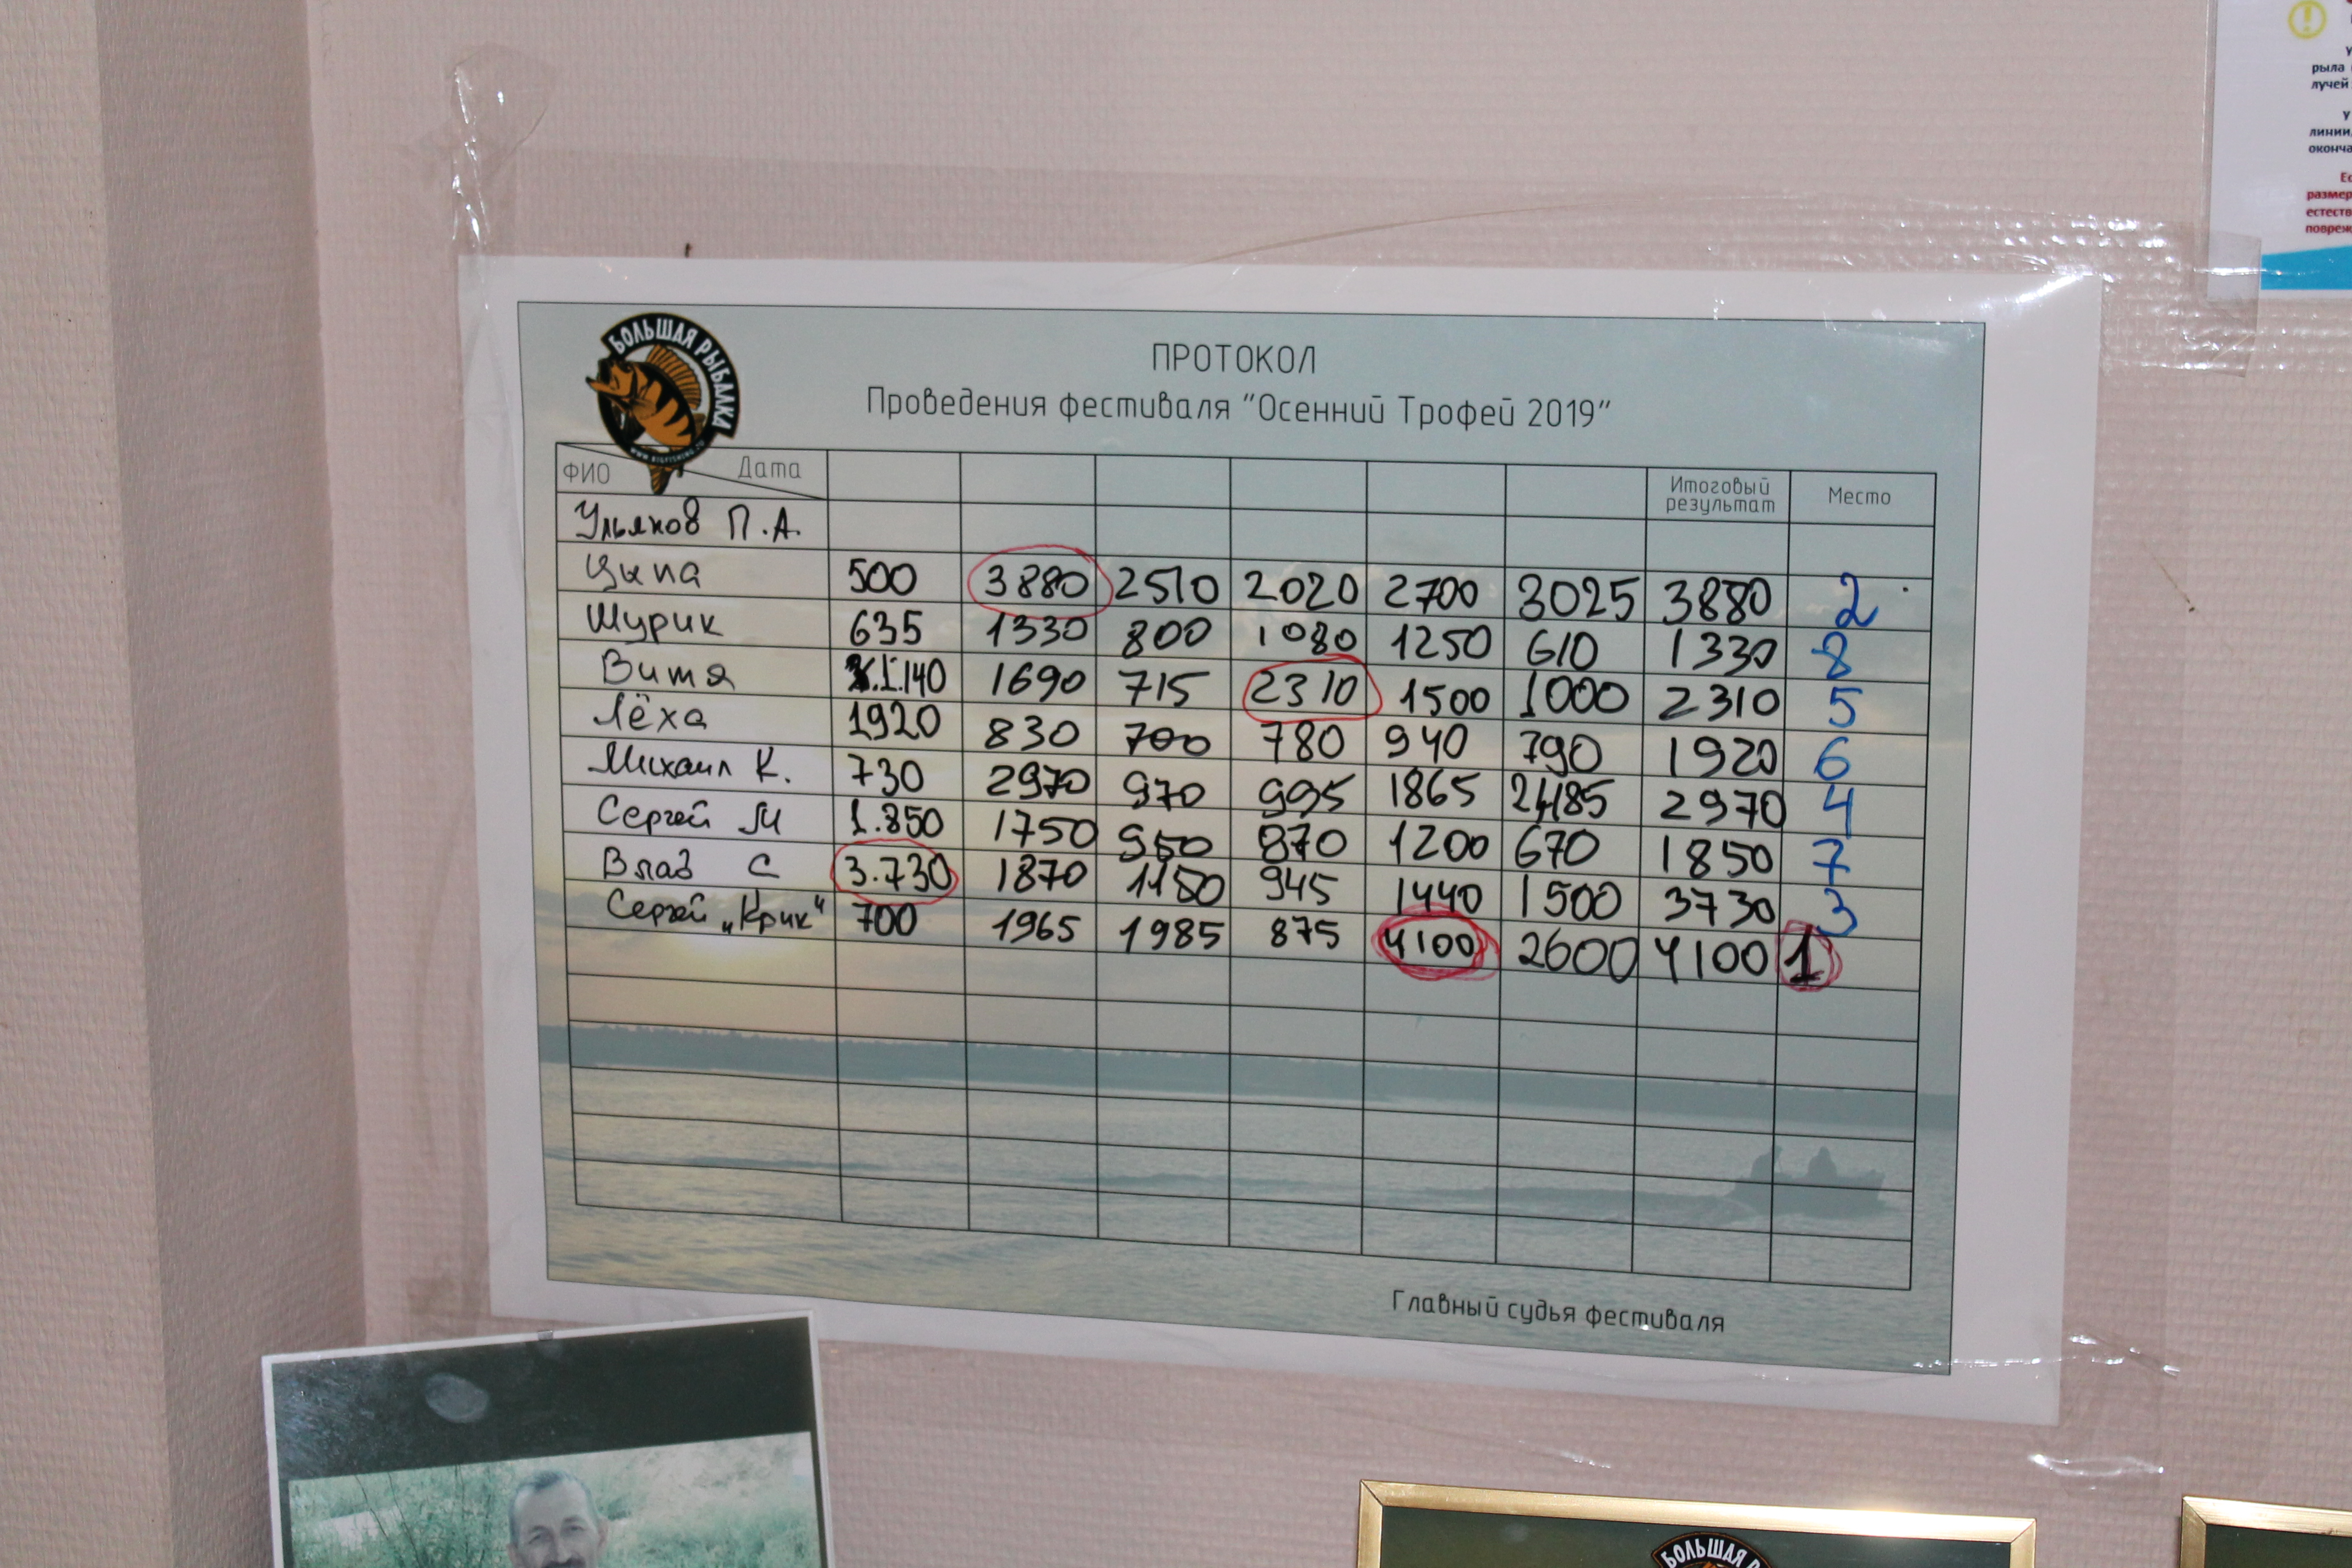 БОЛЬШАЯ РЫБАЛКА
ПРОТОКОЛ
Проведения фестиваля "Осенний Трофей 2019"
ФИО Дата Итоговый результат Место
Ульянов П.А.
Цыпа 500 3880 2510 2020 2700 3025 3880 2
Шурик 635 1330 800 1080 1250 610 1330 8
Витя 1.140 1690 715 2310 1500 1000 2310 5
Лёха 1920 830 700 780 940 790 1920 6
Михаил К. 730 2970 970 995 1865 2970 4
Сергей М 1.850 1750 950 870 1200 670 1850 7
Влад С 3.730 1870 1180 945 1440 1500 3730 3
Сергей „Крик" 700 1965 1985 875 4100 2600 4100 1
Главный судья фестиваля
рыла
лучей
У
линии,
оконча
размер
естеств
повреж
БОЛЬШАЯ РЫБАЛКА